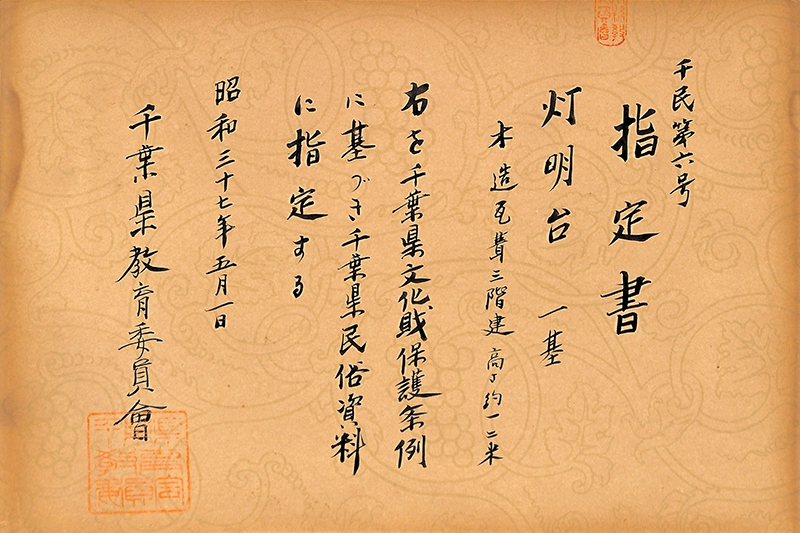 千民第六号
指定書
灯明台　一基
木造瓦葺三階建　高さ約一二米
右を千葉県文化財保護条例
に基づき千葉県民俗資料
に指定する
昭和三十七年五月一日
千葉県教育委員會